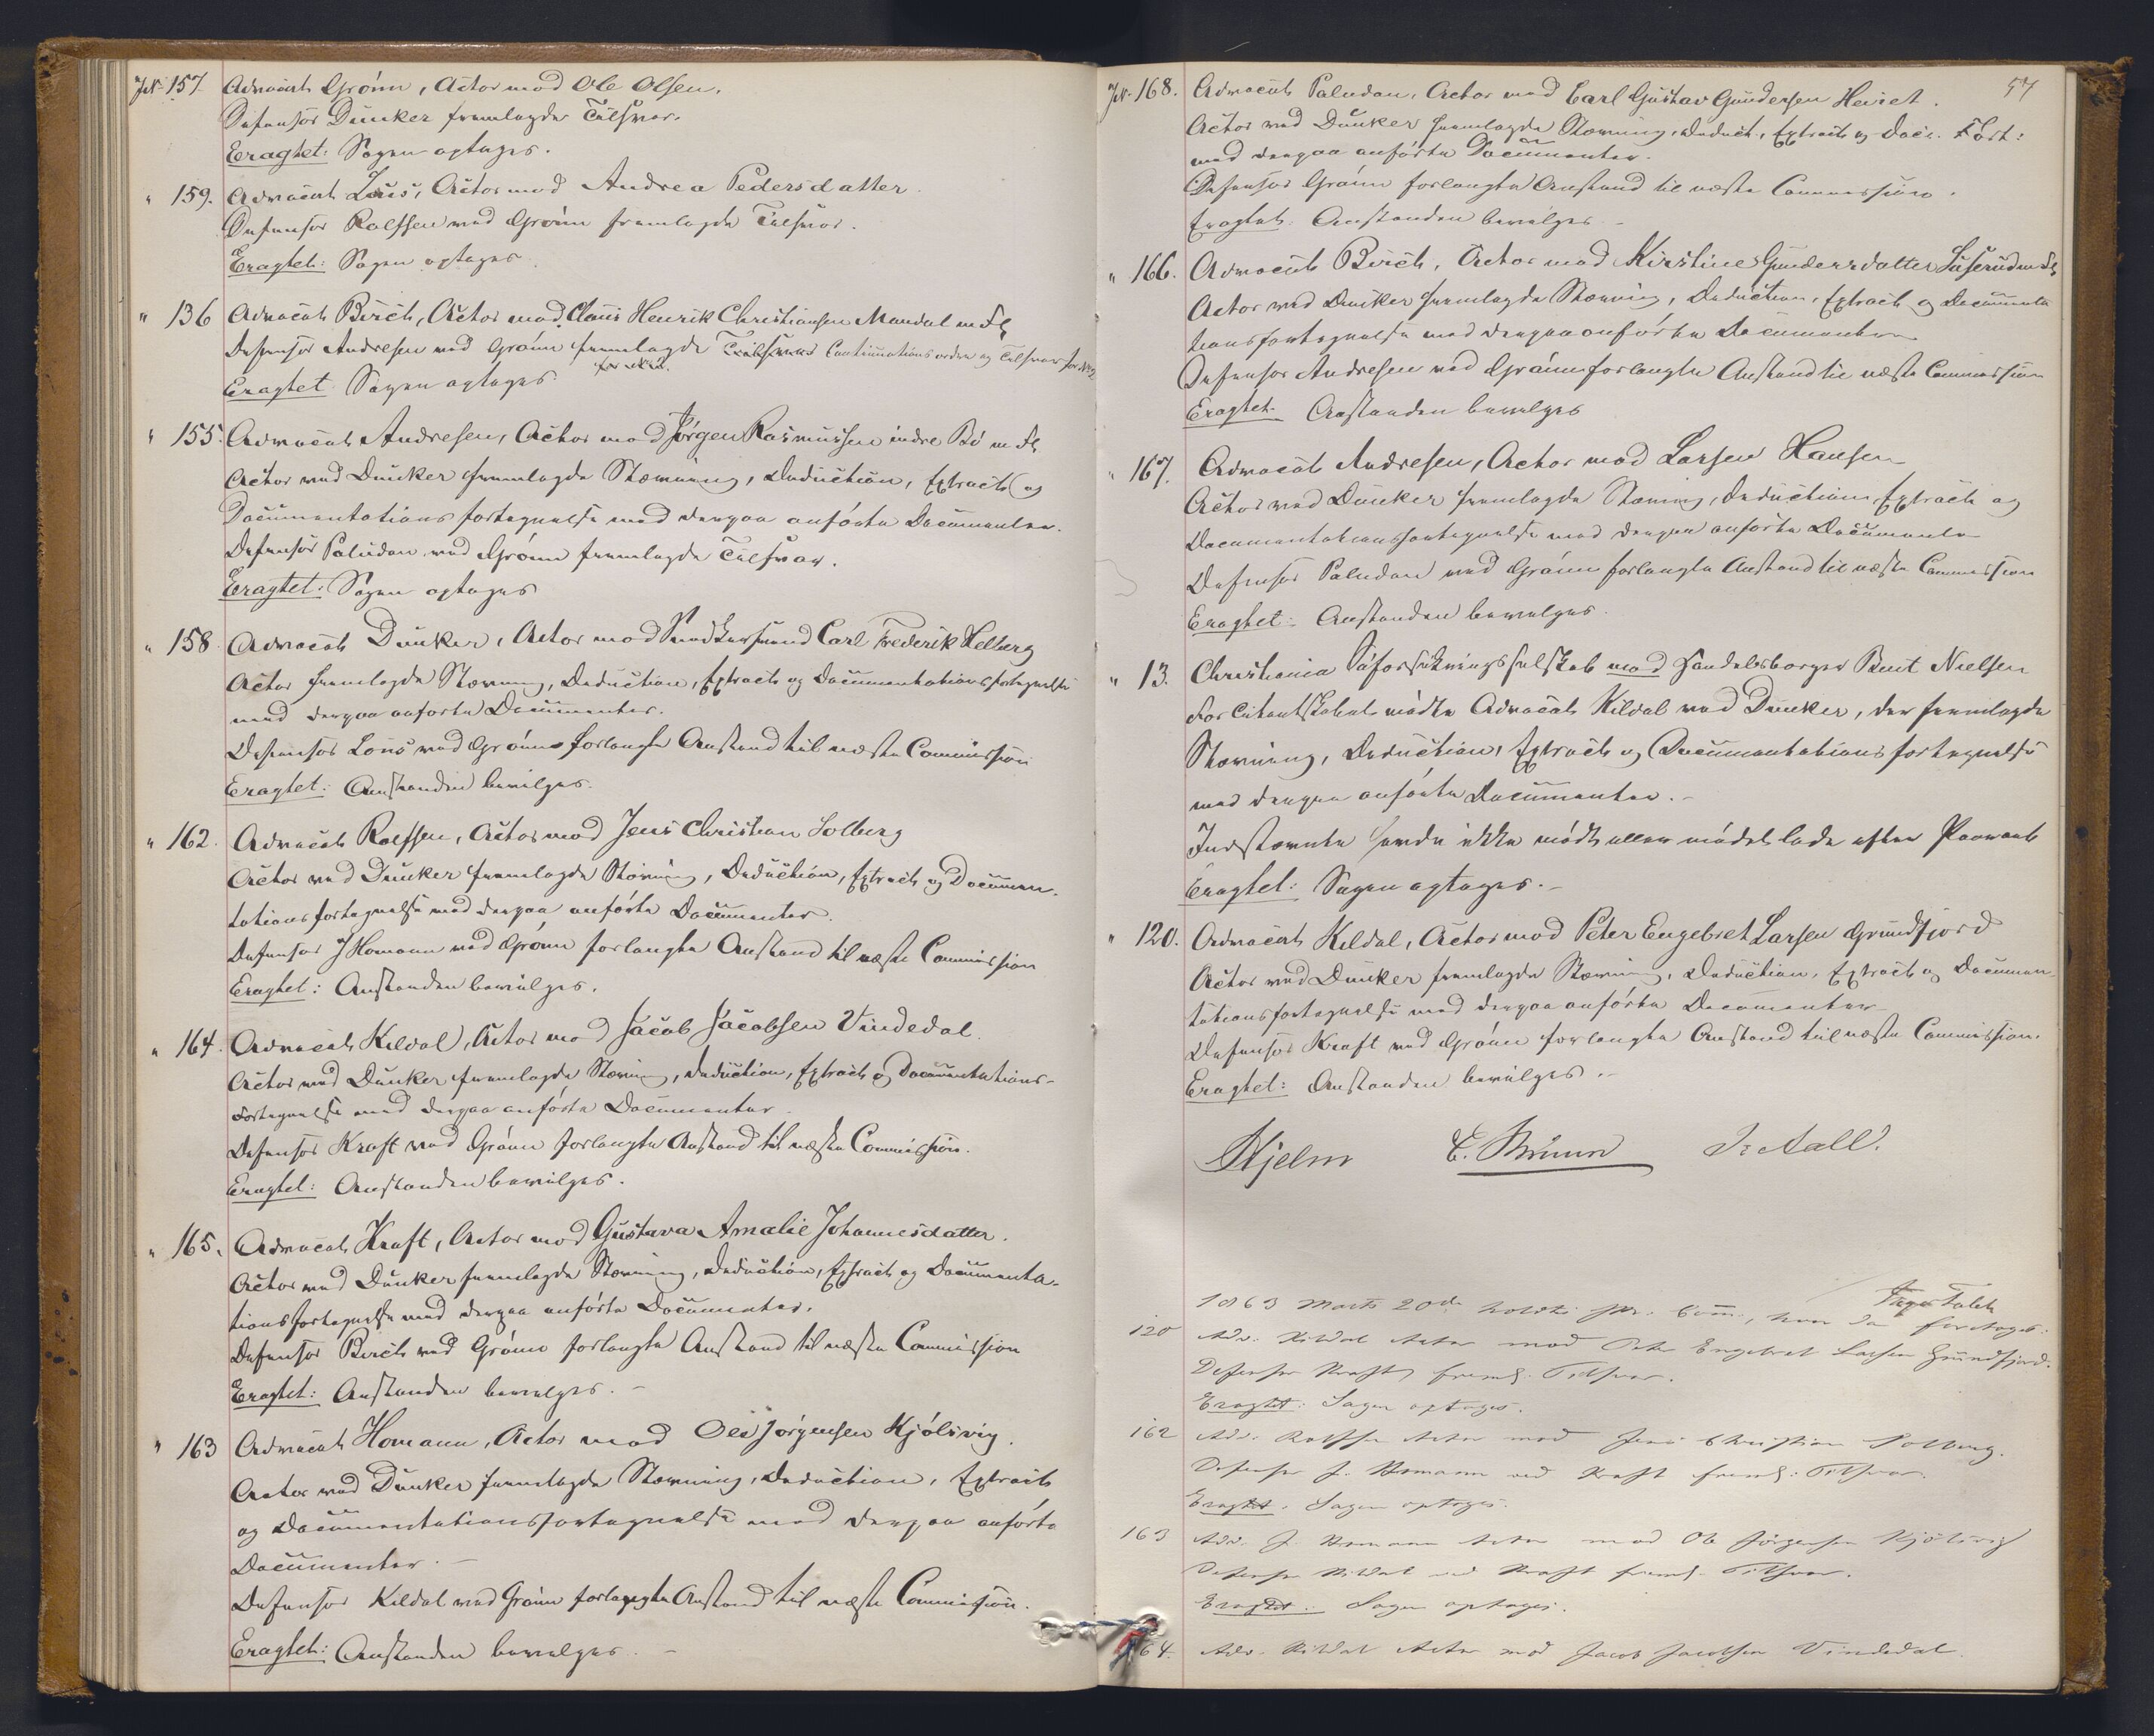 No 157. Advocat Grönn, Actor mod Ole Olsen.
Defensor Dunker fremlagde Tilsvar.
Eragtet: Sagen optages.
" 159. Advocat Lous, Actor mod Andrea Pedersdatter
Defensor Rolffsen ved Grönn fremlagde Tilsvar.
Eragtet: Sagen optages
" 136 Advocat Birch, Actor mod Claus Henrik Christiansen Mandal m Fl
Defensor Andresen ved Grönn fremlagde Continuationsordre og Tilsvar for No 2
Eragtet Sagen optages
" 155. Advocat Andresen, Actor mod Jörgen Rasmussen indre Bö m Fl
Actor ved Dunker fremlagde Stævning, Deduction, Extract og
Documentationsfortegnelse med derpaa anförte Documenter.
Defensor Paludan ved Grönn fremlagde Tilsvar.
Eragtet: Sagen optages
" 158 Advocat Dunker, Actor mod Snedkersvend Carl Frederik Helberg
Actor fremlagde Stævning, Deduction, Extract og Documentationsfortegnelse
med derpaa anförte Documenter.
Defensor Lous ved Grönn forlangte Anstand til næste Commission
Eragtet: Anstanden bevilges.
" 162. Advocat Rolffsen, Actor mod Jens Christian Solberg
Actor ved Dunker fremlagde Stævning, Deduction, Extract og Documen-
tationsfortegnelse med derpaa anförte Documenter.
Defensor J Homann ved Grönn forlangte Anstand til næste Commission
Eragtet: Anstanden bevilges.
" 164. Advocat Kildal, Actor mod Jacob Jacobsen Vindedal.
Actor ved Dunker fremlagde Stævning, Deduction, Extract og Documentations-
fortegnelse med derpaa anförte Documenter.
Defensor Kraft ved Grönn forlangte Anstand til næste Commission.
Eragtet: Anstanden bevilges.
" 165. Advocat Kraft, Actor mod Gustava Amalie Johannesdatter.
Actor ved Dunker fremlagde Stævning, Deduction, Extract og Documenta-
tionsfortegnelse med derpaa anförte Documenter.
Defensor Birch ved Grönn forlangte Anstand til næste Commission
Eragtet: Anstanden bevilges.
" 163 Advocat Homann, Actor mod Ole Jörgensen Kjölsvig.
Actor ved Dunker fremlagde Stævning, Deduction, Extract
og Documentationsfortegnelse med derpaa anförte
Documenter.
Defensor Kildal ved Grönn forlangte Anstand til næste Commission.
Eragtet: Anstanden bevilges.
57
No 168. Advocat Paludan, Actor mod Carl Gustav Gundersen Heiret.
Actor ved Dunker fremlagde Stævning, Deduct., Extract og Doc. Fort:
med derpaa anförte Documenter.
Defensor Grönn forlangte Anstand til næste Commission.
Eragtet: Anstanden bevilges
" 166. Advocat Birch, Actor mod Kirstine Gundersdatter m Fl
Actor ved Dunker fremlagde Stævning, Deduction, Extract og Documenta
tionsfortegnelse med derpaa anförte Documenter
Defensor Andresen ved Grönn forlangte Anstand til næste Commission
Eragtet. Anstanden bevilges
" 167. Advocat Andresen, Actor mod Larsen Hansen
Actor ved Dunker fremlagde Stævning, Deduction, Extract og
Documentationsfortegnelse med derpaa anförte Documenter
Defensor Paludan ved Grönn forlangte Anstand til næste Commission
Eragtet: Anstanden bevilges.
" 13. Christiania Söforsikringsselskab mod Handelsborger Bent Nielsen
For Citantskabet mödte Advocat Kildal ved Dunker, der fremlagde
Stævning, Deduction, Extract og Documentationsfortegnelse
med derpaa anförte Documenter.
Indstævnte havde ikke mödt eller mödet lade efter Paaraab
Eragtet: Sagen optages.
" 120. Advocat Kildal, Actor mod Peter Engebret Larsen Grundfjord
Actor ved Dunker fremlagde Stævning, Deduction, Extract og Documen
tationsfortegnelse med derpaa anförte Documenter
Defensor Kraft ved Grönn forlangte Anstand til næste Commission.
Eragtet: Anstanden bevilges.
Hjelm E. Bruun Aall.
1863 Marts 20de holdtes Com:, hvor da foretoges:
120 Adv: Kildal Actor mod Peter Engebret Larsen Grundfjord.
Defensor Kraft freml: Tilsvar.
Eragtet: Sagen optages.
162 Adv. Rolffsen Actor mod Jens Christian Solberg.
Defensor J. Homann ved Kraft freml: Tilsvar.
Eragtet. Sagen optages.
163 Adv. J. Homann Actor mod Ole Jörgensen Kjölsvig
Defensor Kildal ved Kraft freml. Tilsvar.
Eragtet. Sagen optages.
164. Adv. Kildal Actor mod Jacob Jacobsen Vindedal.